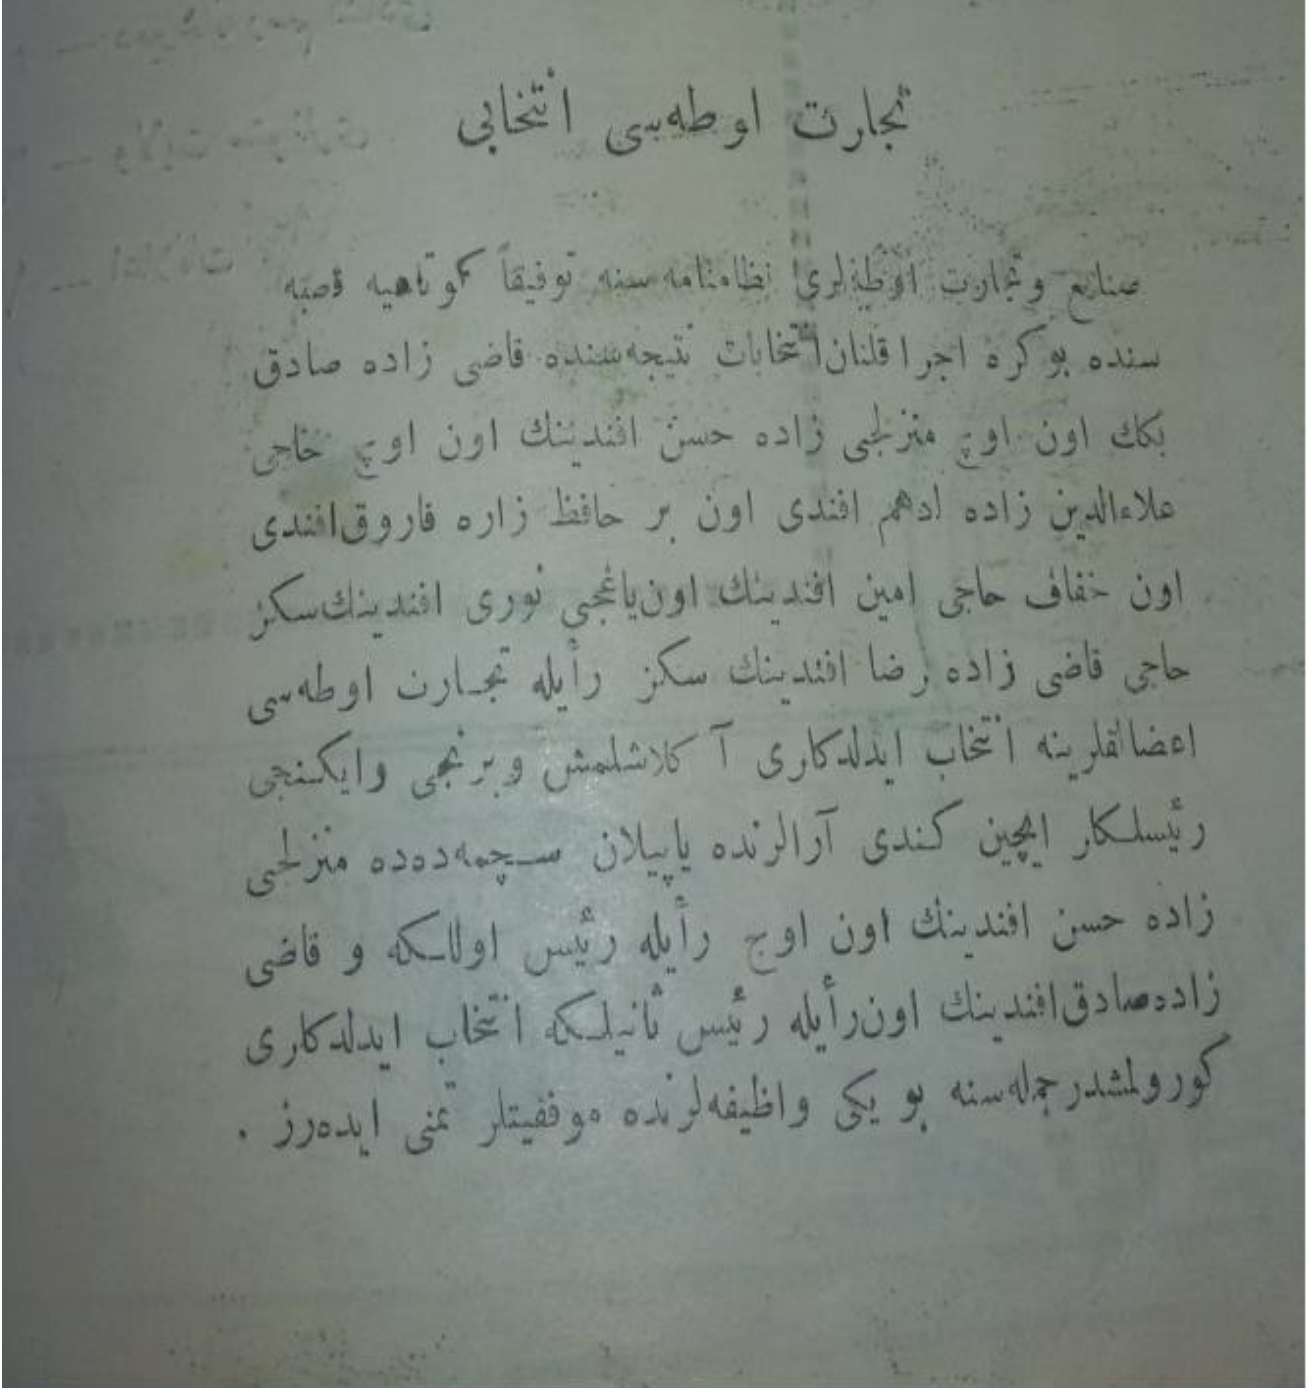 تجارت اوطه‌سی انتخابی
صنایع وتجارت اوطه‌لری نظامنامه سنه توفیقاً كوتاهیه قصبه
سنده بو كره اجرا قلنان انتخابات نتیجه‌سنده قاضی زاده صادق
بكك اون اوچ منزلجی زاده حسن افندیننك اون اوچ حاجی
علاءالدین زاده ادهم افندی اون بر حافظ زاره فاروق افندی
اون خفاف حاجی امین افندینك اون یاغجی نوری افندینك سكز
حاجی قاضی زاده رضا افندینك سكز رأیله تجارت اوطه‌سی
اعضالقلرینه انتخاب ایدلدكاری آ كلاشلمش وبرنجی وایكنجی
رئیسلكار ایچین كندی آرالرنده یاپیلان سچمه‌ده‌ده منزلجی
زاده حسن افندینك اون اوج رأیله رئیس اوللكه و قاضی
زاده صادق افندینك اون رأیله رئیس ثانیلكه انتخاب ایدلدكاری
كورولمشدر جمله‌سنه بو یكی واظیفه‌لرنده موفقیتلر تمنی ایده‌رز .